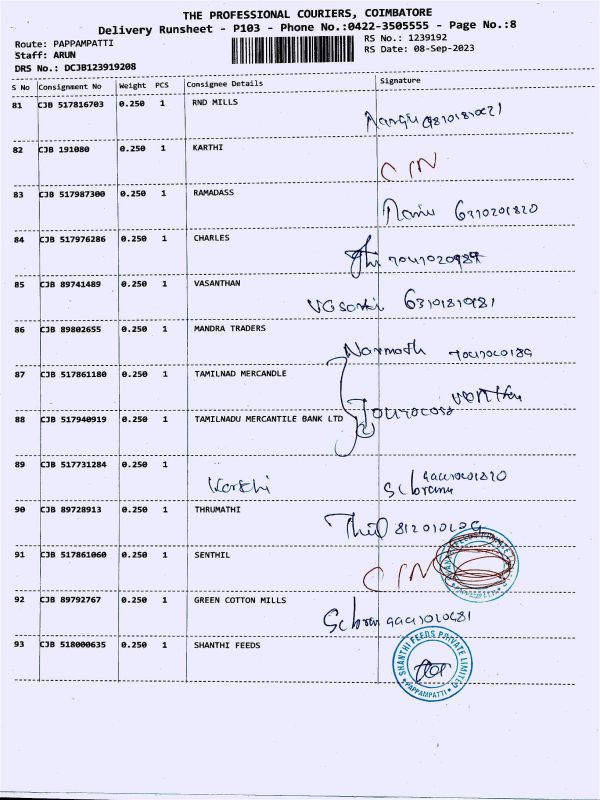 THE PROFESSIONAL COURIERS, COIMBATORE
Delivery Runsheet - P103 - Phone No.:0422-3505555 - Page No.:8
Route: PAPPAMPATTI RS No.: 1239192
Staff: ARUN RS Date: 08-Sep-2023
DRS No.: DCJB123919208
S No Consignment No Weight PCS Consignee Details Signature
81 CJB 517816703 0.250 1 RND MILLS
82 CJB 191080 0.250 1 KARTHI
CIN
83 CJB 517987300 0.250 1 RAMADASS
6310201820
84 CJB 517976286 0.250 1 CHARLES
85 CJB 89741489 0.250 1 VASANTHAN
86 CJB 89802655 0.250 1 MANDRA TRADERS
87 CJB 517861180 0.250 1 TAMILNAD MERCANDLE
88 CJB 517940919 0.250 1 TAMILNADU MERCANTILE BANK LTD
89 CJB 517731284 0.250 1
Karthi
90 CJB 89728913 0.250 1 THRUMATHI
91 CJB 517861060 0.250 1 SENTHIL
CIN
92 CJB 89792767 0.250 1 GREEN COTTON MILLS
93 CJB 518000635 0.250 1 SHANTHI FEEDS
SHANTHI FEEDS PRIVATE LIMITED
PAPPAMPATTI